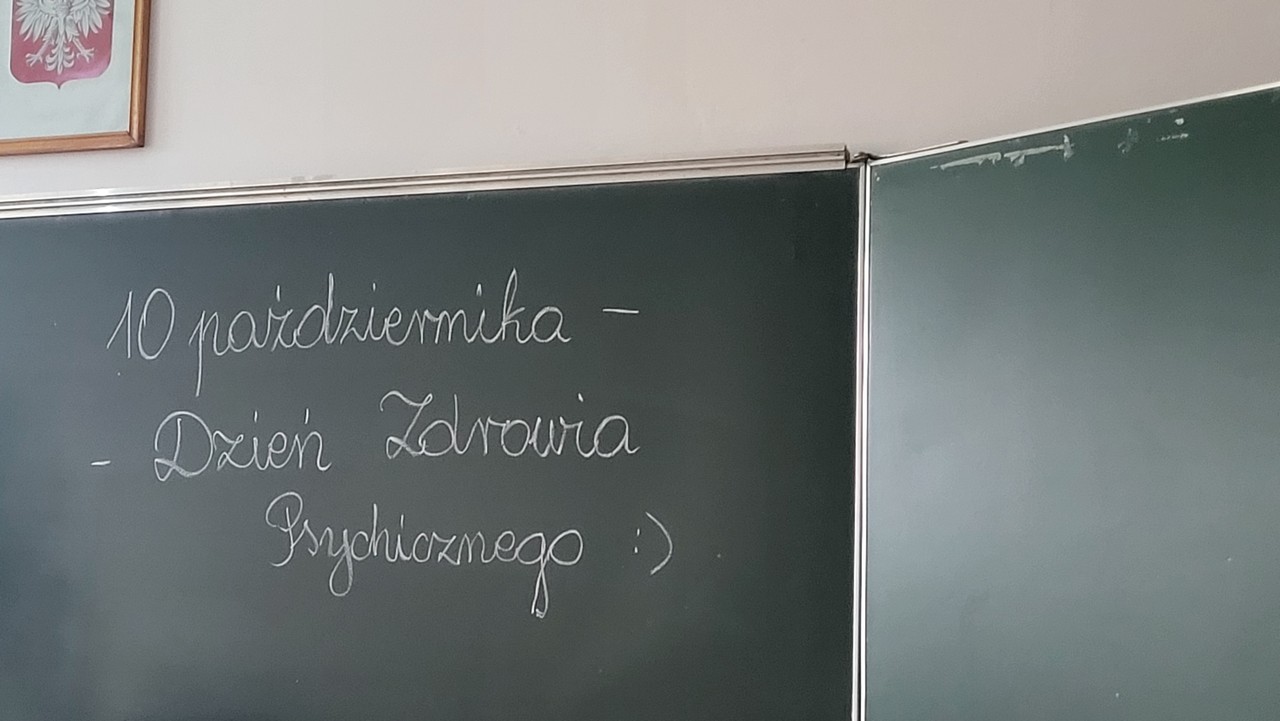 10 października –
- Dzień Zdrowia
Psychicznego :)